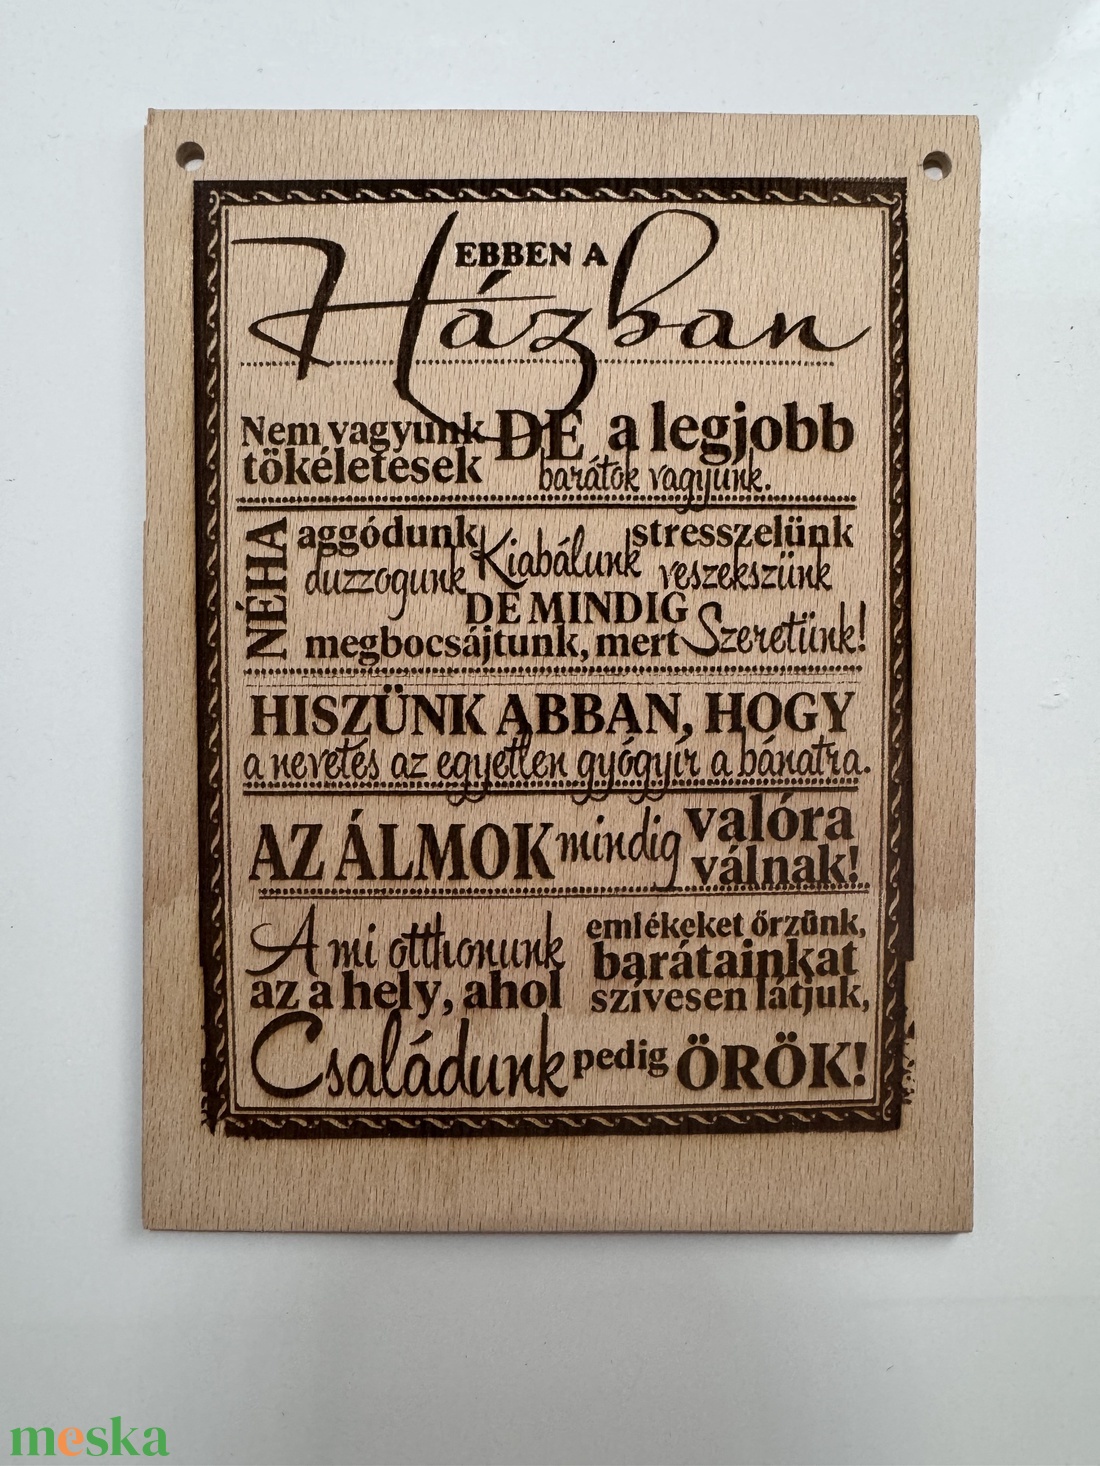 EBBEN A
Házban
Nem vagyunk DE a legjobb
tökéletesek barátok vagyunk.
NÉHA
aggódunk Kiabálunk stresszelünk
duzzogunk veszekszünk
DE MINDIG
megbocsájtunk, mert Szeretünk!
HISZÜNK ABBAN, HOGY
a nevetés az egyetlen gyógyír a bánatra.
AZ ÁLMOK mindig valóra
válnak!
A mi otthonunk
az a hely, ahol
emlékeket őrzünk,
barátainkat
szívesen látjuk,
Családunk pedig ÖRÖK!
meska